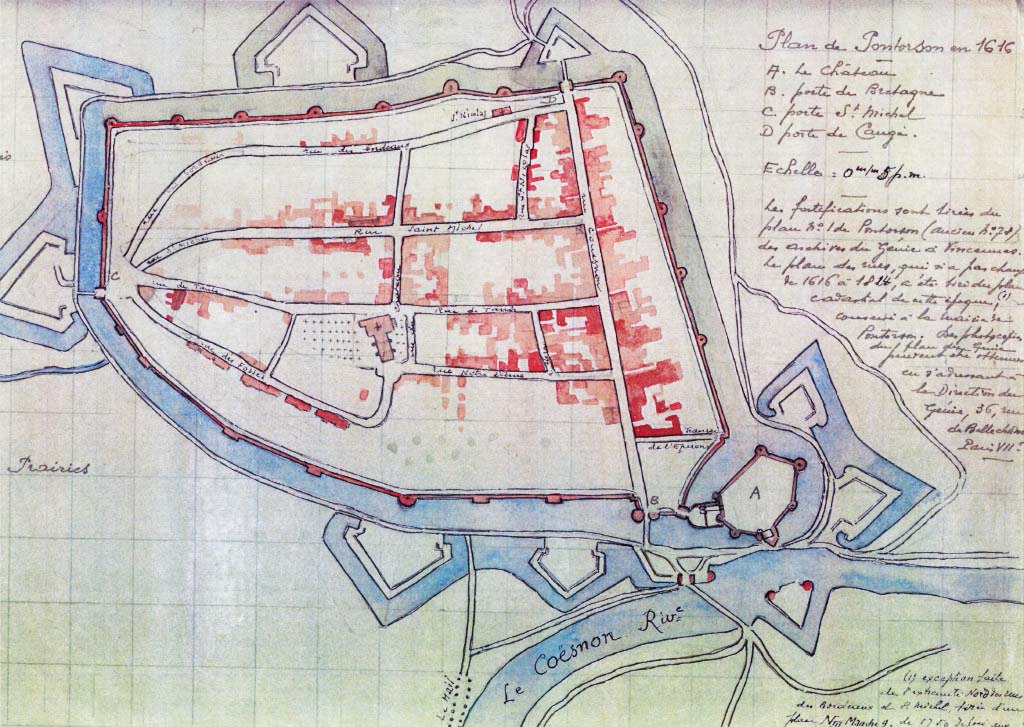 Plan de Pontorson en 1616
A. Le Château
B. porte de Bretagne
C. porte St Michel
D porte de Caugé.
Echelle = 0m/m 5 p.m.
Les fortifications sont tirées du
plan No 1 de Pontorson (ancien No 78)
des archives du Génie à Vincennes.
Le plan des rues, qui n'a pas changé
de 1616 à 1824, a été tiré du plan
cadastral de cette époque, (1)
conservé à la mairie de
Pontorson. Les photocopies
du plan de
peuvent être obtenues
en s'adressant à
la Direction du
Génie, 36, rue
de Bellechasse
Paris VII
(1) exception faite
de l'extrémité Nord des rues
des Bordeaux et St Michel, tirée d'un
plan
St Nicolas
D
rue des Bordeaux
rue des Bordeaux
Rue St Nicolas
Rue Saint Michel
Rue St Michel
C
Rue de Tanis
Rue de Tanis
rue des Fossés
Rue Notre Dame
de l'Eperon
A
B
Prairies
Le Coësnon Riv.e
Le Mail